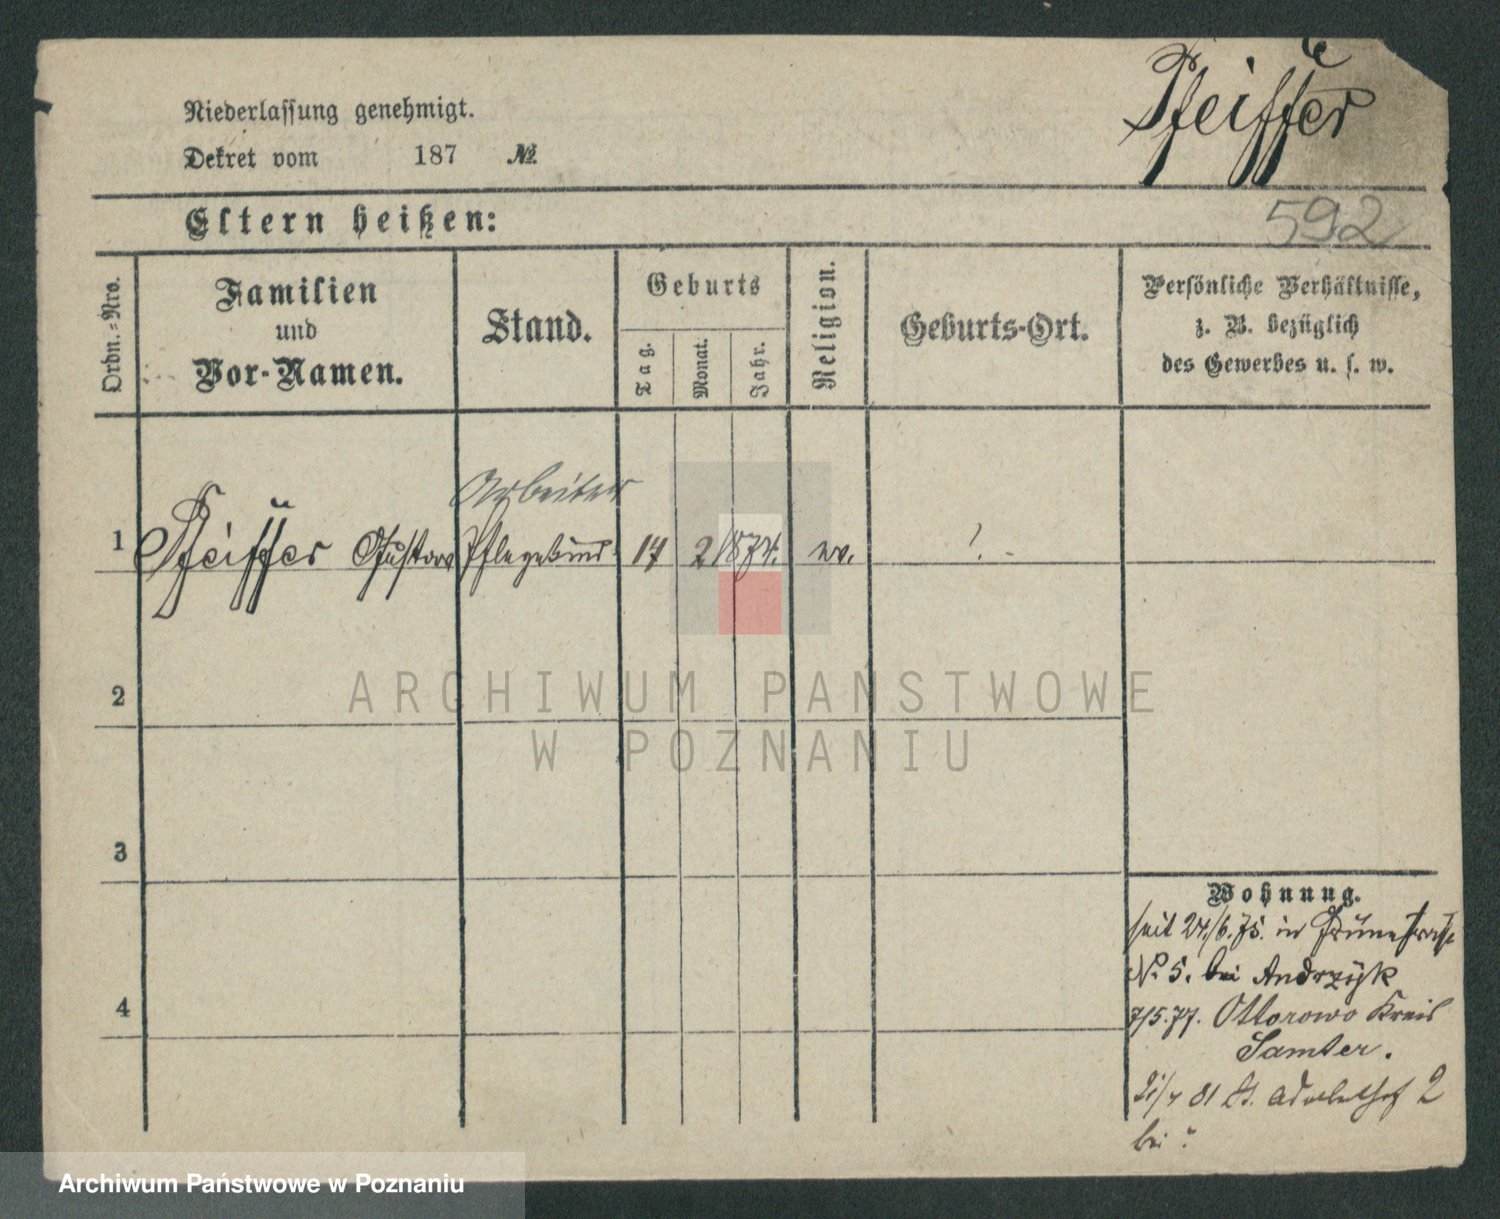 Pfeiffer
Niederlassung genehmigt.
Dekret vom 187 №
592
Eltern heißen:
Ordn.-Nro.
Familien
und
Vor-Namen.
Stand.
Geburts
Tag.
Monat.
Jahr.
Religion.
Geburts-Ort.
Persönliche Verhältnisse,
z. B. bezüglich
des Gewerbes u. s. w.
Arbeiter
1 Pfeiffer Gustav Pflegekind 17 2 1874. ev. ?
2
ARCHIWUM PAŃSTWOWE
W POZNANIU
3
4
Wohnung.
seit 24/6.75. in Grünestraße
No 5. bei Andrzyk
7/5.77. Ottorowo Kreis
Samter.
81 2
bei
Archiwum Państwowe w Poznaniu